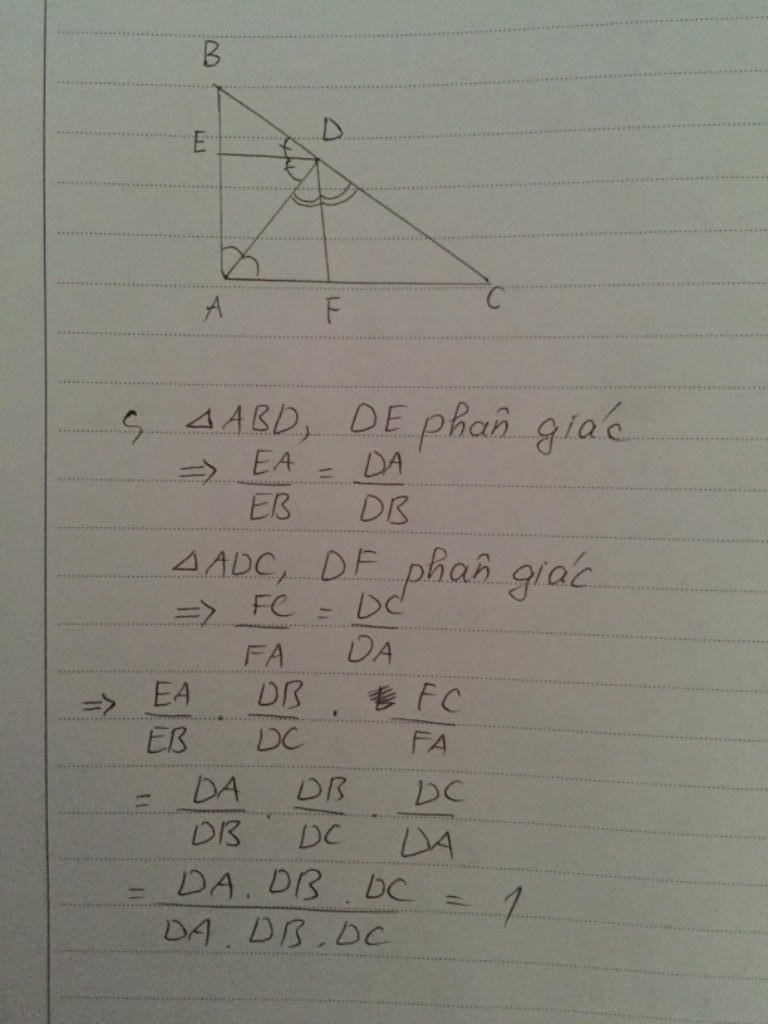 B
E
D
A
F
C
c, △ABD, DE phân giác
=> EA/EB = DA/DB
△ADC, DF phân giác
=> FC/FA = DC/DA
=> EA/EB . DB/DC . FC/FA
= DA/DB . DB/DC . DC/DA
= DA . DB . DC / DA . DB . DC = 1